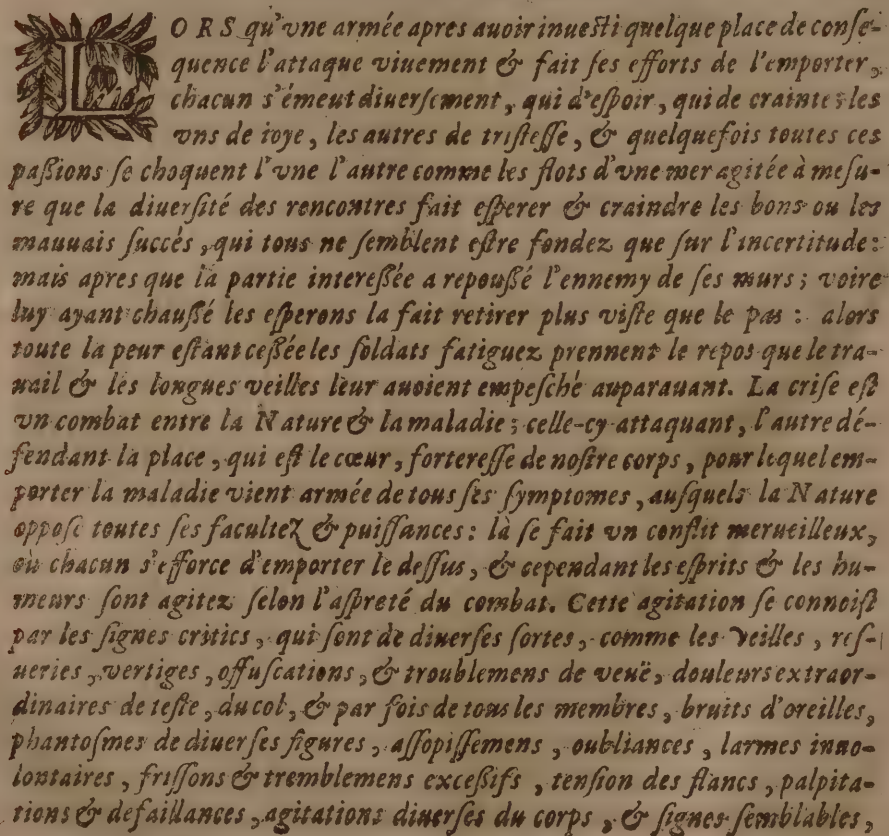 LORS qu'vne armée apres auoir inuesti quelque place de conse-
quence l'attaque viuement & fait ses efforts de l'emporter,
chacun s'émeut diuersement, qui d'espoir, qui de crainte: les
vns de ioye, les autres de tristesse, & quelquefois toutes ces
passions se choquent l'vne l'autre comme les flots d'vne mer agitée à mesu-
re que la diuersité des rencontres fait esperer & craindre les bons ou les
mauuais succés, qui tous ne semblent estre fondez que sur l'incertitude:
mais apres que la partie interessée a repoussé l'ennemy de ses murs; voire
luy ayant chaussé les esperons la fait retirer plus viste que le pas: alors
toute la peur estant cessée les soldats fatiguez prennent le repos que le tra-
uail & les longues veilles leur auoient empesché auparauant. La crise est
vn combat entre la Nature & la maladie; celle-cy attaquant, l'autre dé-
fendant la place, qui est le cœur, forteresse de nostre corps, pour lequel em-
porter la maladie vient armée de tous ses symptomes, ausquels la Nature
oppose toutes ses facultez & puissances: là se fait vn conflit merueilleux,
où chacun s'efforce d'emporter le dessus, & cependant les esprits & les hu-
meurs sont agitez selon l'aspreté du combat. Cette agitation se connoist
par les signes critics, qui sont de diuerses sortes, comme les veilles, res-
ueries, vertiges, offuscations, & troublemens de veuë, douleurs extraor-
dinaires de teste, du col, & par fois de tous les membres, bruits d'oreilles,
phantosmes de diuerses figures, assopissemens, oubliances, larmes inuo-
lontaires, frissons & tremblemens excessifs, tension des flancs, palpita-
tions & defaillances, agitations diuerses du corps, & signes semblables,